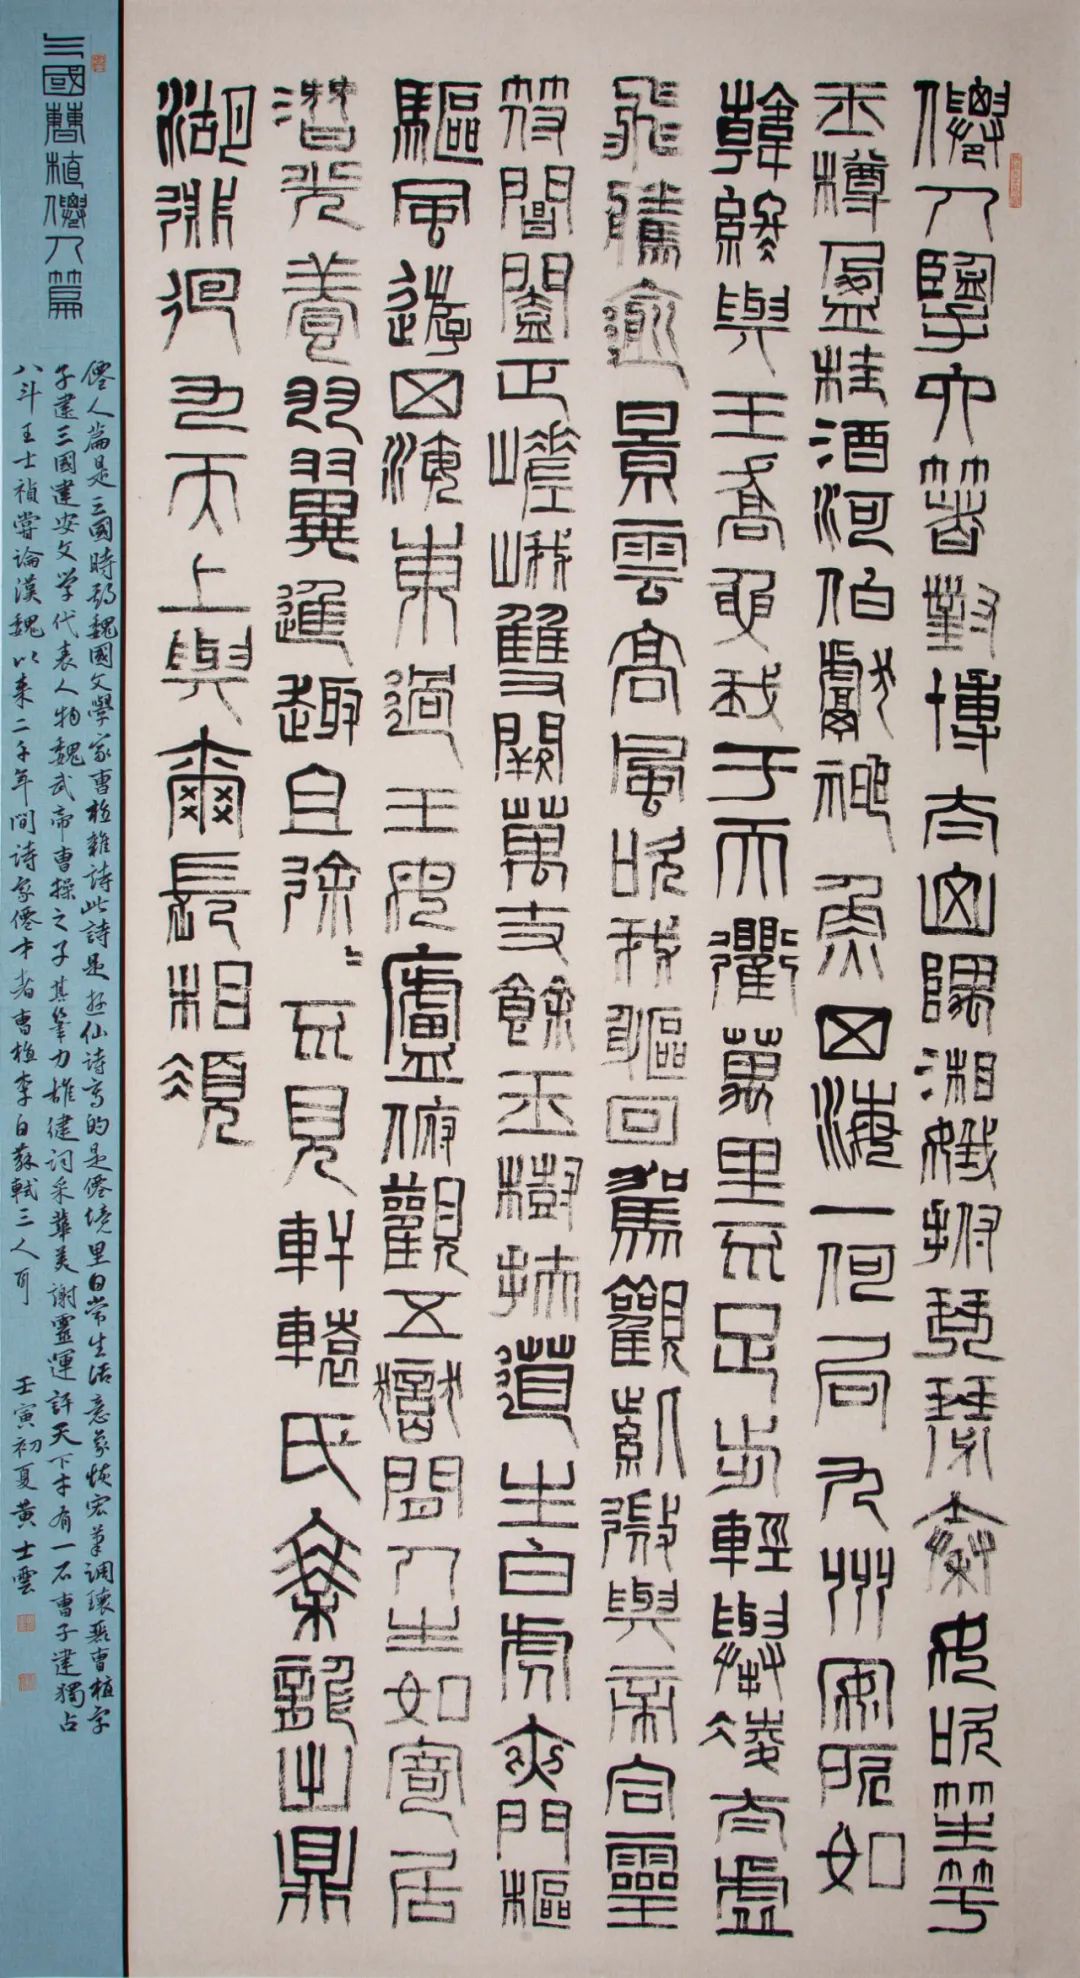 僊人擥六箸對博太山隅湘娥拊琴瑟秦女吹笙竽
玉樽盈桂酒河伯獻神魚四海一何局九州安所如
韓終與王喬要我于天衢萬里不足步輕舉凌太虛
飛騰逾景雲高風吹我軀回駕觀紫微與帝合靈
符閶闔正嵯峨雙闕萬丈餘玉樹扶道生白虎夾門樞
驅風遊四海東過王母廬俯觀五嶽間人生如寄居
潛光養羽翼進趣且徐〻不見軒轅氏乘龍出鼎
湖徘徊九天上與爾長相須
三國曹植僊人篇
僊人篇是三國時期魏國文學家曹植雜詩此詩是遊仙诗寫的是僊境里日常生活意象恢宏筆調瓌麗曹植字
子建三國建安文学代表人物魏武帝曹操之子其筆力雄健词采華美謝靈運許天下才有一石曹子建獨占
八斗王士禎嘗論漢魏以来二千年間詩家僊才者曹植李白蘇軾三人耳 壬寅初夏黄士雲